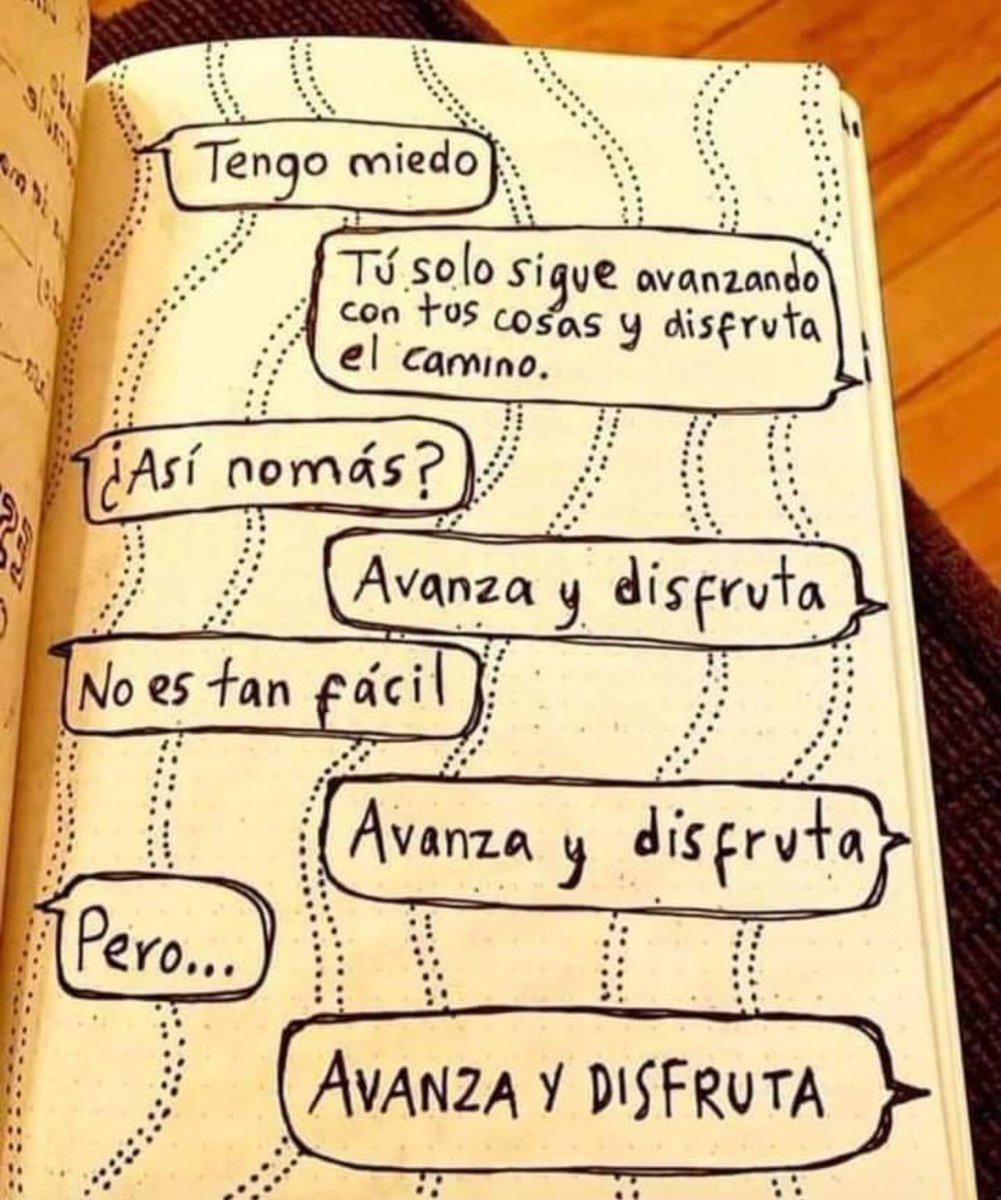 Tengo miedo
Tú solo sigue avanzando
con tus cosas y disfruta
el camino.
¿Así nomás?
Avanza y disfruta
No es tan fácil
Avanza y disfruta
Pero...
AVANZA Y DISFRUTA